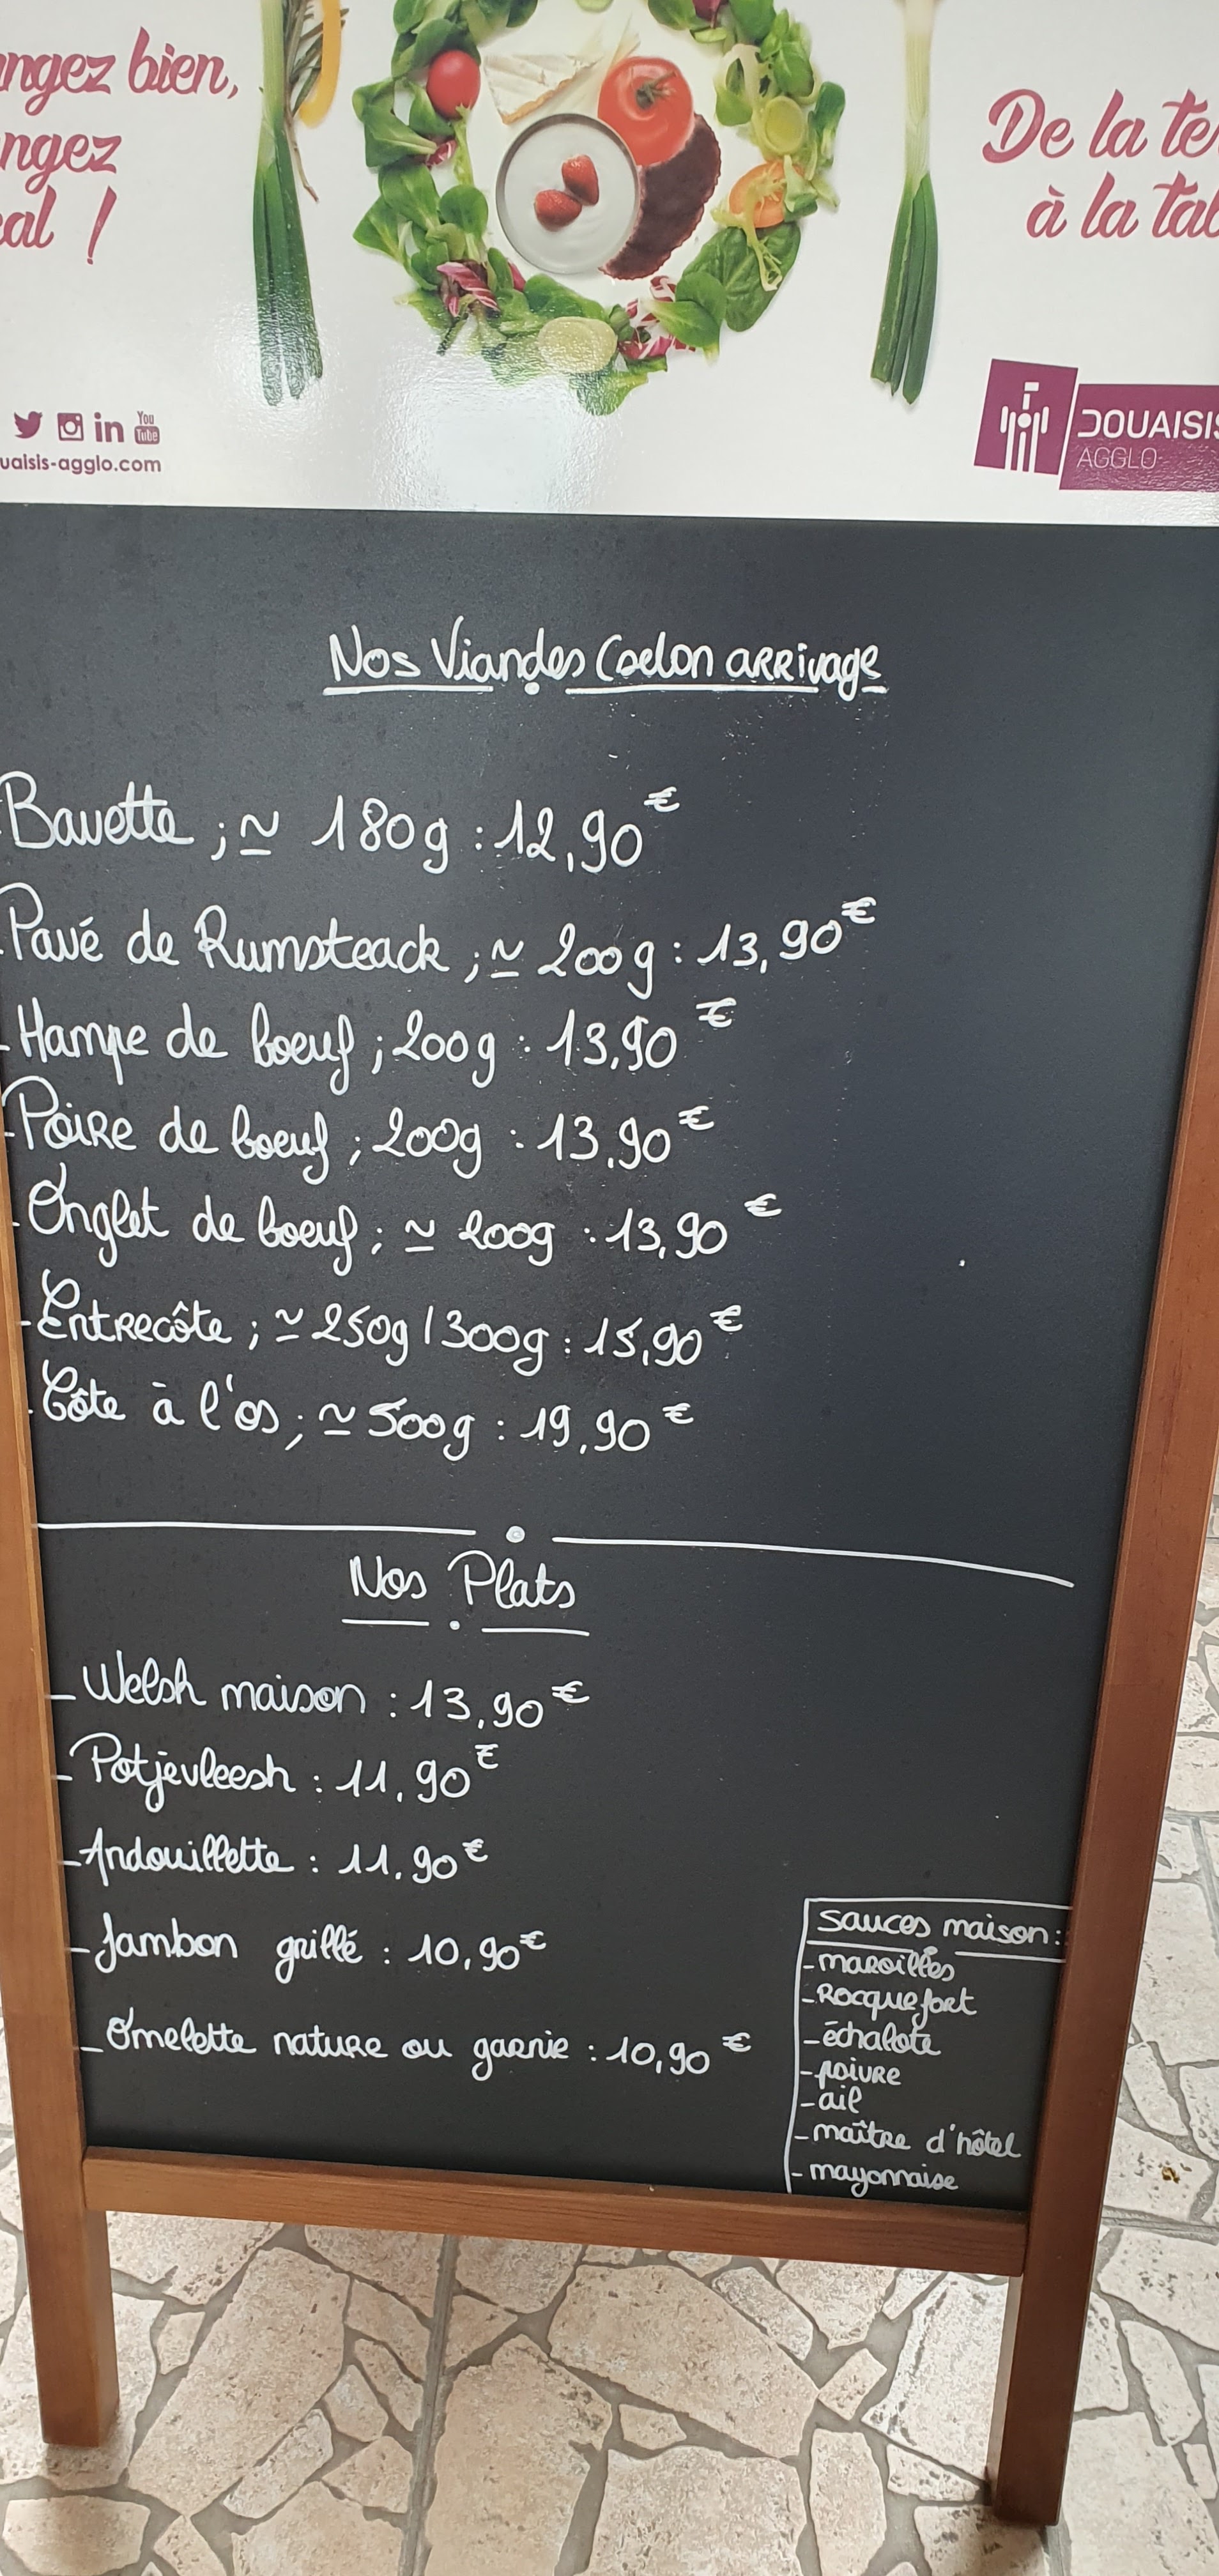 ngez bien,
ngez
cal !
De la te
à la tab
You
Tube
in
uaisis-agglo.com
DOUAISIS
AGGLO
Nos Viandes (selon arrivage
Bavette ; ≃ 180g : 12,90€
Pavé de Rumsteack ; ≃ 200g : 13,90€
- Hampe de boeuf ; 200g : 13,90€
- Poire de boeuf ; 200g : 13,90€
- Onglet de boeuf ; ≃ 200g : 13,90€
- Entrecôte ; ≃ 250g / 300g : 15,90€
- Côte à l'os ; ≃ 500g : 19,90€
Nos Plats
- Welsh maison : 13,90€
- Potjevleesh : 11,90€
- Andouillette : 11.90€
- Jambon grillé : 10,90€
- Omelette nature ou garnie : 10,90€
sauces maison :
- maroilles
- Rocquefort
- échalote
- poivre
- ail
- maître d'hôtel
- mayonnaise